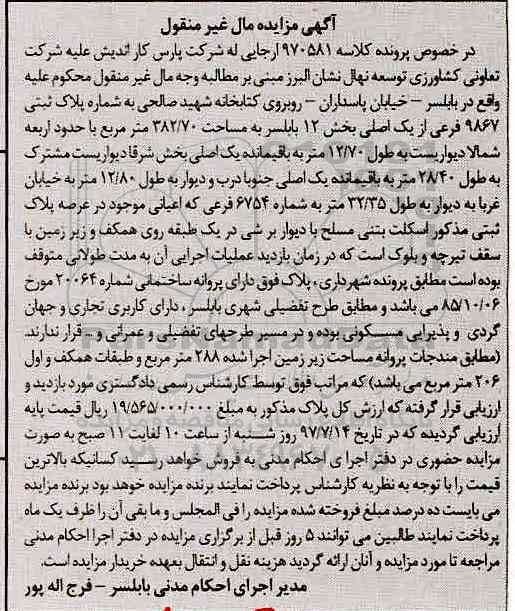 آگهی مزایده مال غیر منقول
در خصوص پرونده کلاسه ۹۷۰۵۸۱ ارجایی له شرکت پارس کار اندیش علیه شرکت
تعاونی کشاورزی توسعه نهال نشان البرز مبنی بر مطالبه وجه مال غیر منقول محکوم علیه
واقع در بابلسر – خیابان پاسداران – روبروی کتابخانه شهید صالحی به شماره پلاک ثبتی
۹۸۶۷ فرعی از یک اصلی بخش ۱۲ بابلسر به مساحت ۳۸۲/۷۰ متر مربع با حدود اربعه
شمالا دیواریست به طول ۱۲/۷۰ متر به باقیمانده یک اصلی بخش شرقا دیواریست مشترک
به طول ۲۸/۴۰ متر به باقیمانده یک اصلی جنوبا درب و دیوار به طول ۱۲/۸۰ متر به خیابان
غربا به دیوار به طول ۳۲/۳۵ متر به شماره ۶۷۵۴ فرعی که اعیانی موجود در عرصه پلاک
ثبتی مذکور اسکلت بتنی مسلح با دیوار بر شی در یک طبقه روی همکف و زیر زمین با
سقف تیرچه و بلوک است که در زمان بازدید عملیات اجرایی آن به مدت طولانی متوقف
بوده است مطابق پرونده شهرداری ، پلاک فوق دارای پروانه ساختمانی شماره ۲۰۰۶۴ مورخ
۸۵/۱۰/۰۶ می باشد و مطابق طرح تفضیلی شهری بابلسر ، دارای کاربری تجاری و جهان
گردی و پذیرایی مسکونی بوده و در مسیر طرحهای تفضیلی و عمرانی و ... قرار ندارند.
(مطابق مندجات پروانه مساحت زیر زمین اجرا شده ۲۸۸ متر مربع و طبقات همکف و اول
۲۰۶ متر مربع می باشد) که مراتب فوق توسط کارشناس رسمی دادگستری مورد بازدید و
ارزیابی قرار گرفته که ارزش کل پلاک مذکور به مبلغ ۱۹/۵۶۵/۰۰۰/۰۰۰ ریال قیمت پایه
ارزیابی گردیده که در تاریخ ۹۷/۷/۱۴ روز شنبه از ساعت ۱۰ لغایت ۱۱ صبح به صورت
مزایده حضوری در دفتر اجرا ی احکام مدنی به فروش خواهد رسید کسانیکه بالاترین
قیمت را با توجه به نظریه کارشناس پرداخت نمایند برنده مزایده خواهد بود برنده مزایده
می بایست ده درصد مبلغ فروخته شده مزایده را فی المجلس و ما بقی آن را ظرف یک ماه
پرداخت نمایند طالبین می توانند ۵ روز قبل از برگزاری مزایده در دفتر اجرا احکام مدنی
مراجعه تا مورد مزایده و آنان ارائه گردید هزینه نقل و انتقال بعهده خریدار مزایده است.
مدیر اجرای احکام مدنی بابلسر – فرج اله پور